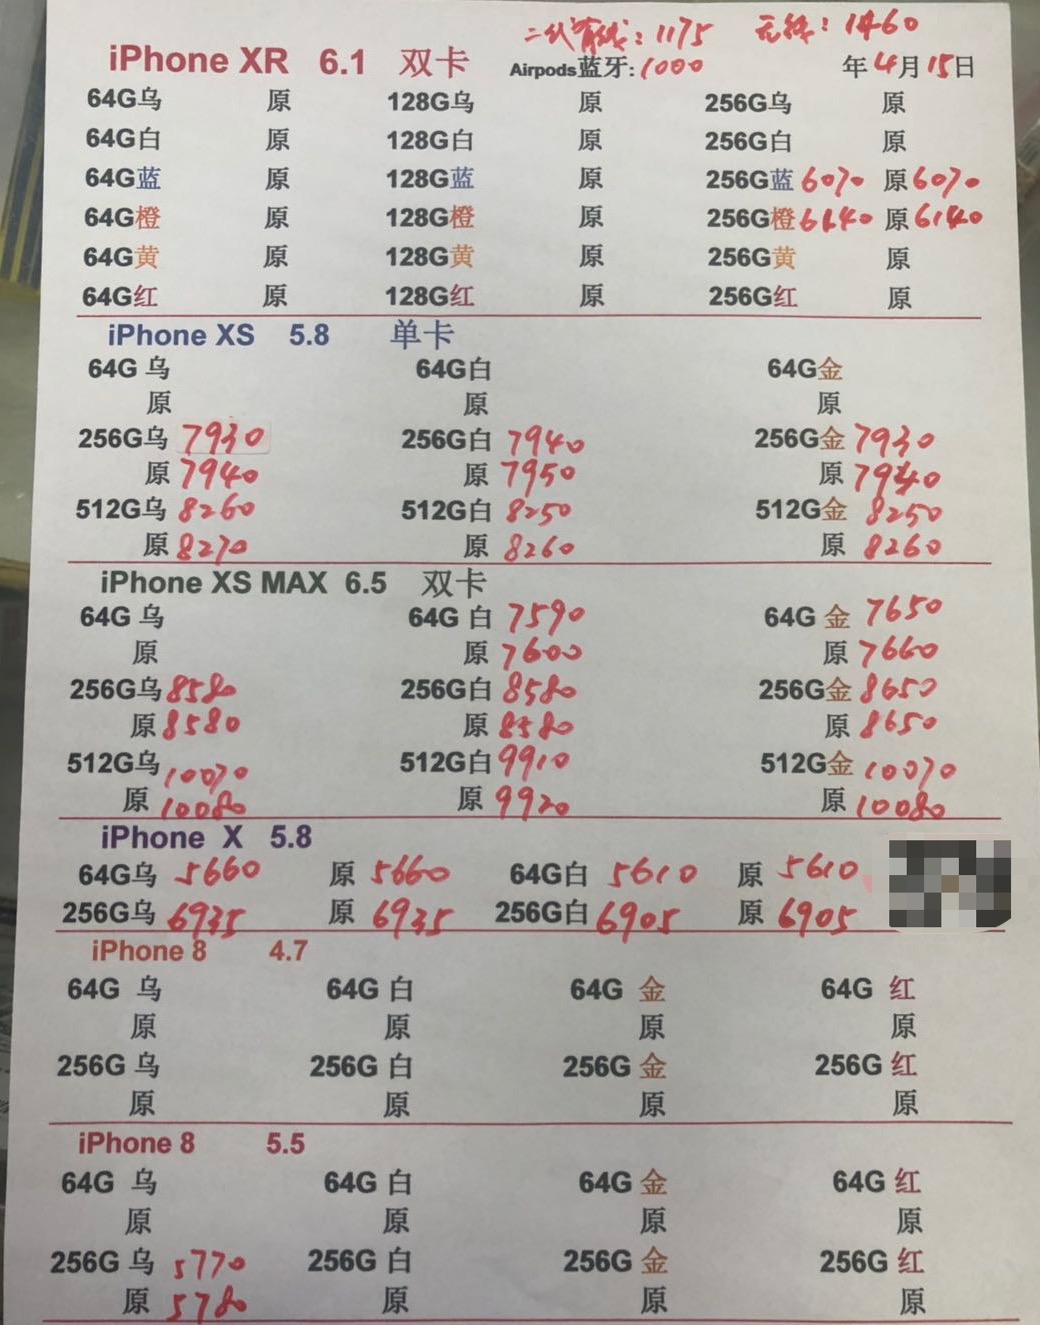 二代有线：1175 无线：1460
iPhone XR 6.1 双卡 Airpods蓝牙:1000 年4月15日
64G乌 原 128G乌 原 256G乌 原
64G白 原 128G白 原 256G白 原
64G蓝 原 128G蓝 原 256G蓝 6070 原 6070
64G橙 原 128G橙 原 256G橙 6140 原 6140
64G黄 原 128G黄 原 256G黄 原
64G红 原 128G红 原 256G红 原
iPhone XS 5.8 单卡
64G 乌 64G白 64G金
原 原 原
256G乌 7930 256G白 7940 256G金 7930
原 7940 原 7950 原 7940
512G乌 8260 512G白 8250 512G金 8250
原 8270 原 8260 原 8260
iPhone XS MAX 6.5 双卡
64G 乌 64G 白 7590 64G 金 7650
原 原 7600 原 7660
256G乌 8580 256G白 8580 256G金 8650
原 8580 原 8580 原 8650
512G乌 10070 512G白 9910 512G金 10070
原 10080 原 9920 原 10080
iPhone X 5.8
64G乌 5660 原 5660 64G白 5610 原 5610
256G乌 6935 原 6935 256G白 6905 原 6905
iPhone 8 4.7
64G 乌 64G 白 64G 金 64G 红
原 原 原 原
256G 乌 256G 白 256G 金 256G 红
原 原 原 原
iPhone 8 5.5
64G 乌 64G 白 64G 金 64G 红
原 原 原 原
256G 乌 5770 256G 白 256G 金 256G 红
原 5780 原 原 原